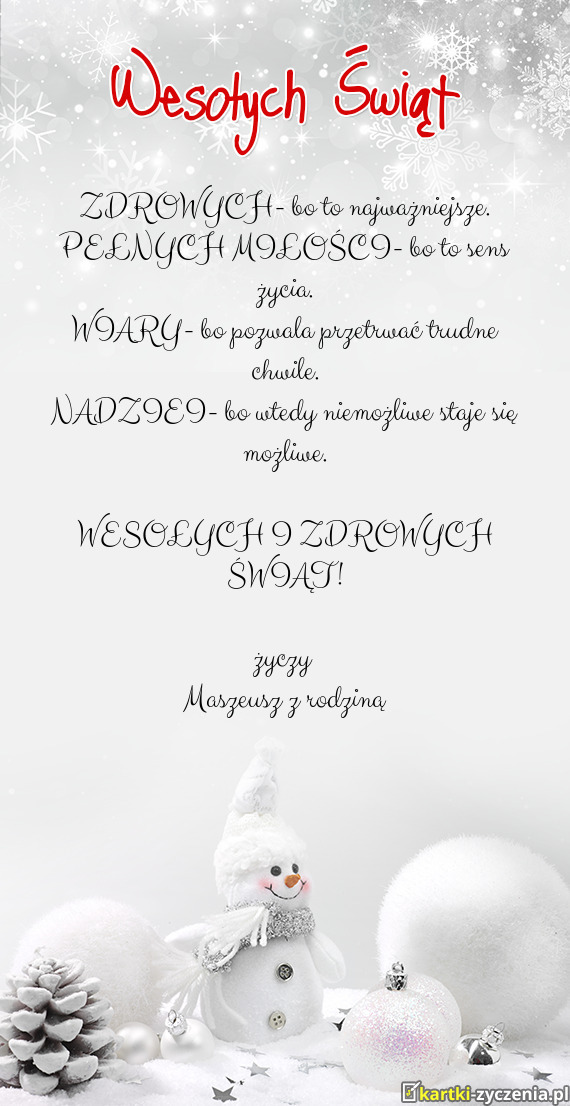 Wesołych Świąt
ZDROWYCH- bo to najważniejsze.
PEŁNYCH MIŁOŚCI- bo to sens
życia.
WIARY- bo pozwala przetrwać trudne
chwile.
NADZIEI- bo wtedy niemożliwe staje się
możliwe.
WESOŁYCH I ZDROWYCH
ŚWIĄT!
życzy
Maszeusz z rodziną
kartki-zyczenia.pl